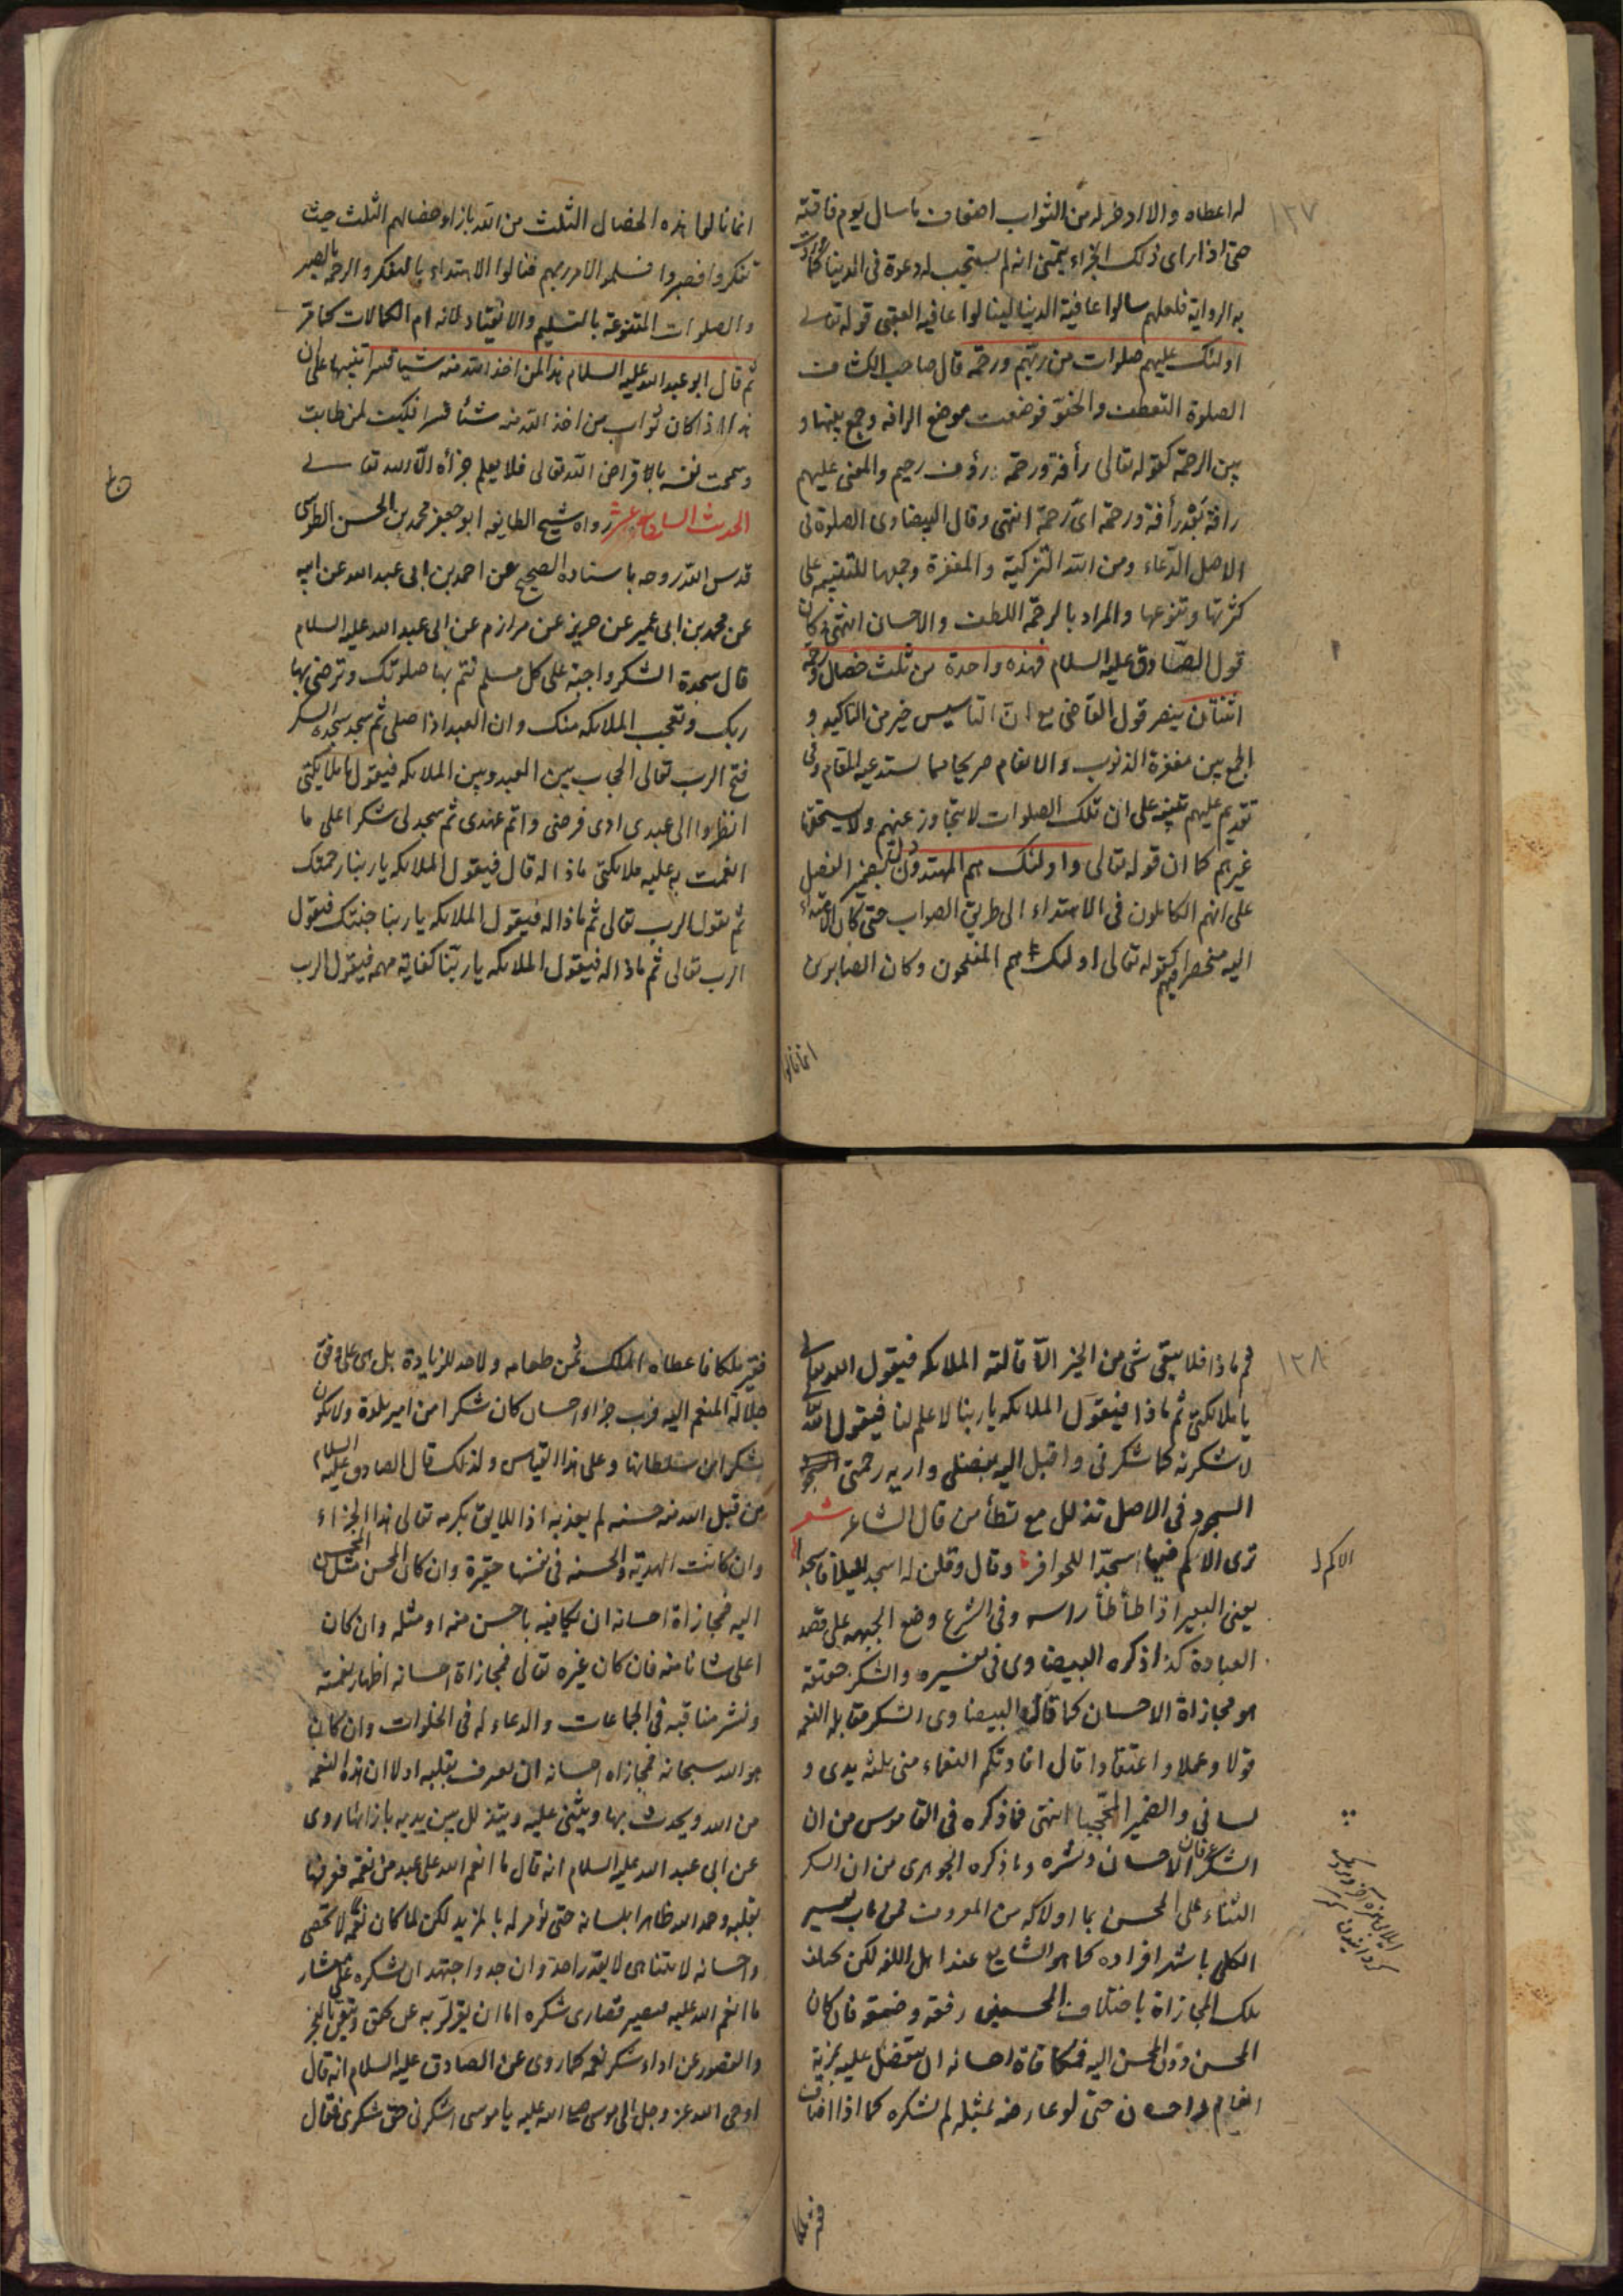 ١٣٧
له اعطاه والا ادخر له من الثواب اضعاف ما سال ليوم فاقته
حتى اذا رای ذلک الجزاء یتمنى انه لم یستجب له دعوة فى الدنیا كما وردت
به الروایة فلعلهم سالوا عافیة الدنیا لینالوا عافیة العقبى قوله تعالى
اولئک علیهم صلوات من ربهم ورحمة قال صاحب الکشاف
الصلوة التعطف والحنو فوضعت موضع الرافة وجمع بینها و
بین الرحمة کقوله تعالى رأفة ورحمة رؤف رحیم والمعنى علیهم
رافة بعد رأفة ورحمة اى رحمة انتهى وقال البیضاوى الصلوة فى
الاصل الدعاء ومن الله التزکیة والمغفرة وجمعها للتنبیه على
کثرتها وتنوعها والمراد بالرحمة اللطف والاحسان انتهى وکان
قول الصادق علیه السلام فهذه واحدة من ثلث خصال ورحمة
اثنتان ینصر قول القاضى مع ان التاسیس خیر من التاکید و
الجمع بین مغفرة الذنوب والانعام صریحا مما یستدعیه المقام وفى
تقدیم علیهم تنبیه على ان تلک الصلوات لا یتجاوز عنهم ولا یستحقها
غیرهم کما ان قوله تعالى واولئک هم المهتدون دل بضمیر الفصل
على انهم الکاملون فى الاهتداء الى طریق الصواب حتى کان الاهتداء
الیه منحصر فیهم کقوله تعالى اولئک هم المفلحون وکان الصابرین
انما نالوا
انما نالوا هذه الخصال الثلث من الله بازاء خصالهم الثلث حیث
تفکروا فصبروا فسلموا الامر ربهم فنالوا الاهتداء بالتفکر والرحمة بالصبر
والصلوات المتنوعة بالتسلیم والانقیاد لانه ام الکمالات کما مر
ثم قال ابو عبد الله علیه السلام هذا لمن اخذ الله منه شیئا قسرا تنبیها على ان
هذا اذا کان ثواب من اخذ الله منه شیئا قسرا فکیف لمن طابت
وسمحت نفسه بالاقراض الله تعالى فلا یعلم جزأه الا الله تعالى
الحدیث السابع عشر رواه شیخ الطایفه ابو جعفر محمد بن الحسن الطوسى
قدس الله روحه باسناده الصحیح عن احمد بن ابى عبد الله عن ابیه
عن محمد بن ابى عمیر عن حریز عن مرازم عن ابى عبد الله علیه السلام
قال سجدة الشکر واجبة على کل مسلم تتم بها صلوتک وترضى بها
ربک وتعجب الملائکه منک وان العبد اذا صلى ثم سجد سجدة الشکر
فتح الرب تعالى الحجاب بین العبد وبین الملائکه فیقول یا ملائکتى
انظروا الى عبدى ادى فرضى واتم عهدى ثم سجد لى شکرا على ما
انعمت به علیه ملائکتى ماذا له قال فیقول الملائکه یا ربنا رحمتک
ثم یقول الرب تعالى ثم ماذا له فیقول الملائکه یا ربنا جنتک فیقول
الرب تعالى ثم ماذا له فیقول الملائکه یا ربنا کفایة مهمه فیقول الرب
١٣٨
ثم ماذا فلا یبقى شى من الخیر الا قالته الملائکه فیقول الله تعالى
یا ملائکتى ثم ماذا فیقول الملائکه یا ربنا لا علم لنا فیقول الله تعالى
لاشکرنه کما شکرنى واقبل الیه بفضلى واریه رحمتى
السجود فى الاصل تذلل مع تطأمن قال الشاعر شعر
ترى الاکم فیها سجدا للحوافر وقال وقلن له اسجد للیلى فاسجدا
الاکم
یعنى البعیر اذا طأطأ راسه وفى الشرع وضع الجبهه على قصد
العبادة کذا ذکره البیضاوى فى تفسیره والشکر حقیقته
هو مجازاة الاحسان کما قال البیضاوى الشکر مقابلة النعمه
قولا وعملا واعتقادا قال افادتکم النعماء منى ثلثه یدى و
لسانى والضمیر المحجبا انتهى فما ذکره فى القاموس من ان
الشکر عرفان الاحسان ونشره وما ذکره الجوهرى من ان الشکر
الثناء على المحسن بما اولاکه من المعروف فمن باب تفسیر
الکلى باشهر افراده کما هو الشایع عند اهل اللغه لکن یختلف
تلک المجازاة باختلاف المحسنین رفعة وضعة فان کان
المحسن دون المحسن الیه فمکافاة احسانه ان یتفضل علیه بمزیة
انعام واحسان حتى لو عارضه بمثله لم یشکره کما اذا اضاف
فقیر ملکا
فقیر ملکا فاعطاه الملک ثمن طعامه ولا حد للزیادة بل هى على وفق
جلالة المنعم الیه فرب جزاء احسان کان شکرا من امیر بلدة ولا یکون
شکرا من سلطانها وعلى هذا القیاس ولذلک قال الصادق علیه السلام
من قبل الله منه حسنه لم یعذبه اذ اللایق بکرمه تعالى هذا الجزاء
وان کانت الهدیة والحسنه فى نفسها حقیرة وان کان المحسن مثل المحسن
الیه فمجازاة احسانه ان یکافیه باحسن منه او مثله وان کان
اعلى شانا منه فان کان غیره تعالى فمجازاة احسانه اظهار نعمته
ونشر مناقبه فى الجماعات والدعاء له فى الخلوات وان کان
هو الله سبحانه فمجازاة احسانه ان یعرف بقلبه اولا ان هذه النعمه
من الله ویحدث بها ویثنى علیه ویتذلل بین یدیه بازائها روى
عن ابى عبد الله علیه السلام انه قال ما انعم الله على عبد من نعمة فعرفها
بقلبه وحمد الله ظاهرا بلسانه حتى یؤمر له بالمزید لکن لما کان نعمه لا تحصى
واحسانه لا یتناهى لا یقدر احد وان جد واجتهد ان شکره على عشار
ما انعم الله علیه فیصیر قصارى شکره اما ان یقر لربه عن حق ویتیقن بالعجز
والقصور عن اداء شکر نعمه کما روى عن الصادق علیه السلام انه قال
اوحى الله عز وجل الى موسى صلى الله علیه یا موسى اشکرنى حق شکرى فقال